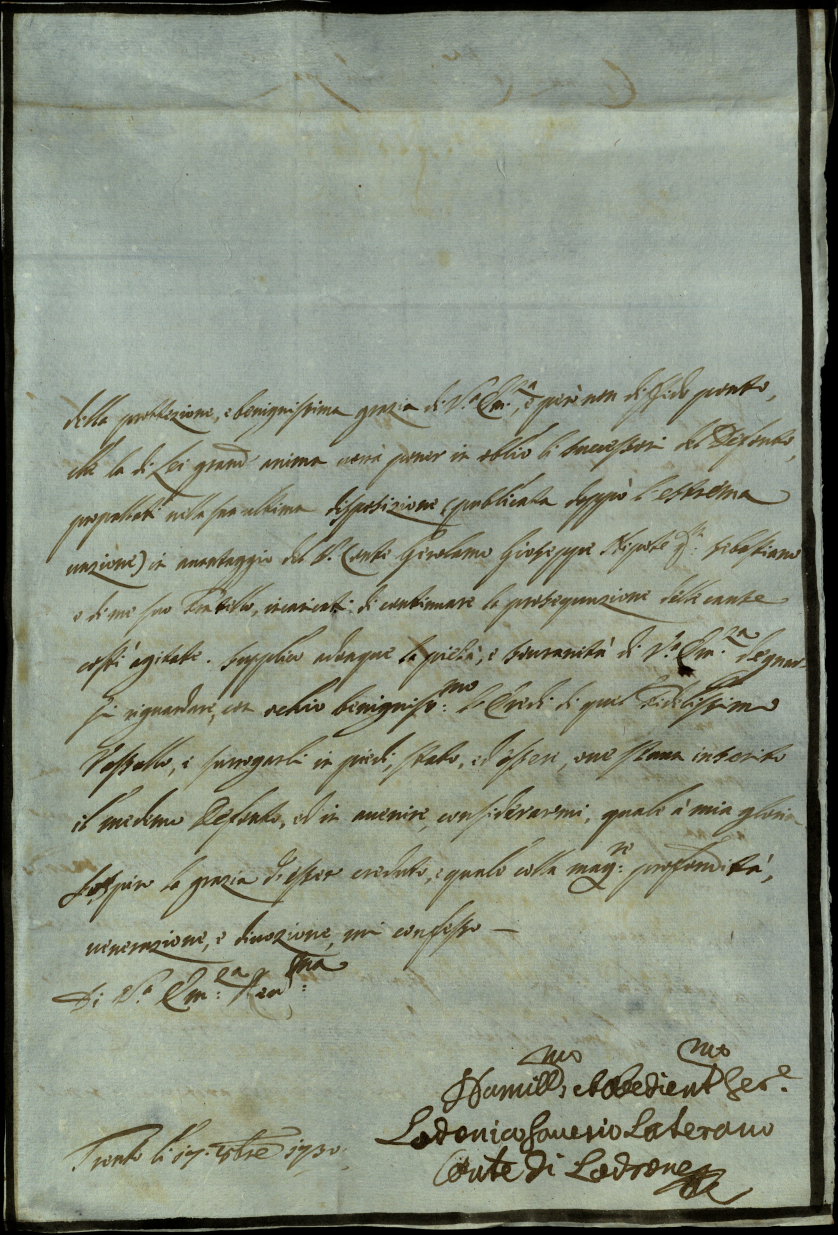 della prottezione, e benignissima grazia di V.ª Em.ª, e però non diffido ponto,
che la di Lei grand' anima vorrà poner in oblio li successori del Defonto,
nella sua ultima disposizione (publicata doppò l'estrema
) in avantaggio del S.r Conte Girolamo Gioseppe Nipote q.m Sebastiano
e di me suo Fratello, incaricati di continuare la prosequuzione delle cause
costì agitate. Supplico adonque la pietà, e souranità di V.ª Em.za degnar-
si riguardare, con ochio benigniss.mo le Eredi di quel Fidelissimo
Vassallo, e surrogarli in piedi, stato, ed essere, oue staua inserito
il medemo Defonto, ed in auenire, considerarmi, quale à mia gloria
sospiro la grazia d'esser creduto, e quale colla mag.re profondità,
venerazione, e diuozione, mi confesso —
Di V.ª Em.za Reu.ma
Humill.mo et Obedient.mo Ser.e
Lodouico Sauerio Laterano
Conte di Lodrone
Trento li 17. 1730.